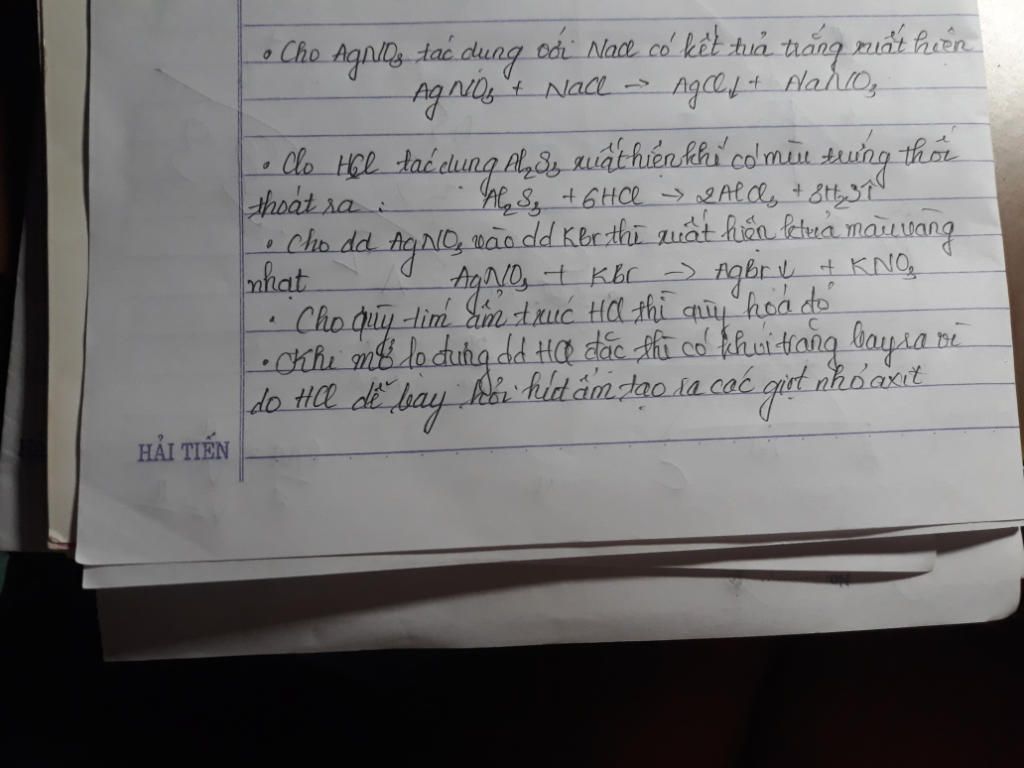 • Cho AgNO₃ tác dụng với NaCl có kết tủa trắng xuất hiện
AgNO₃ + NaCl → AgCl↓ + NaNO₃
• Cho HCl tác dụng Al₂S₃ xuất hiện khí có mùi trứng thối
thoát ra : Al₂S₃ + 6HCl → 2AlCl₃ + 3H₂S↑
• Cho dd AgNO₃ vào dd KBr thì xuất hiện ktủa màu vàng
nhạt AgNO₃ + KBr → AgBr↓ + KNO₃
• Cho quỳ tím ẩm t.xúc HCl thì quỳ hoá đỏ
• Khi mở lọ đựng dd HCl đặc thì có khói trắng bay ra vì
do HCl dễ bay hơi hút ẩm tạo ra các giọt nhỏ axit
HẢI TIẾN